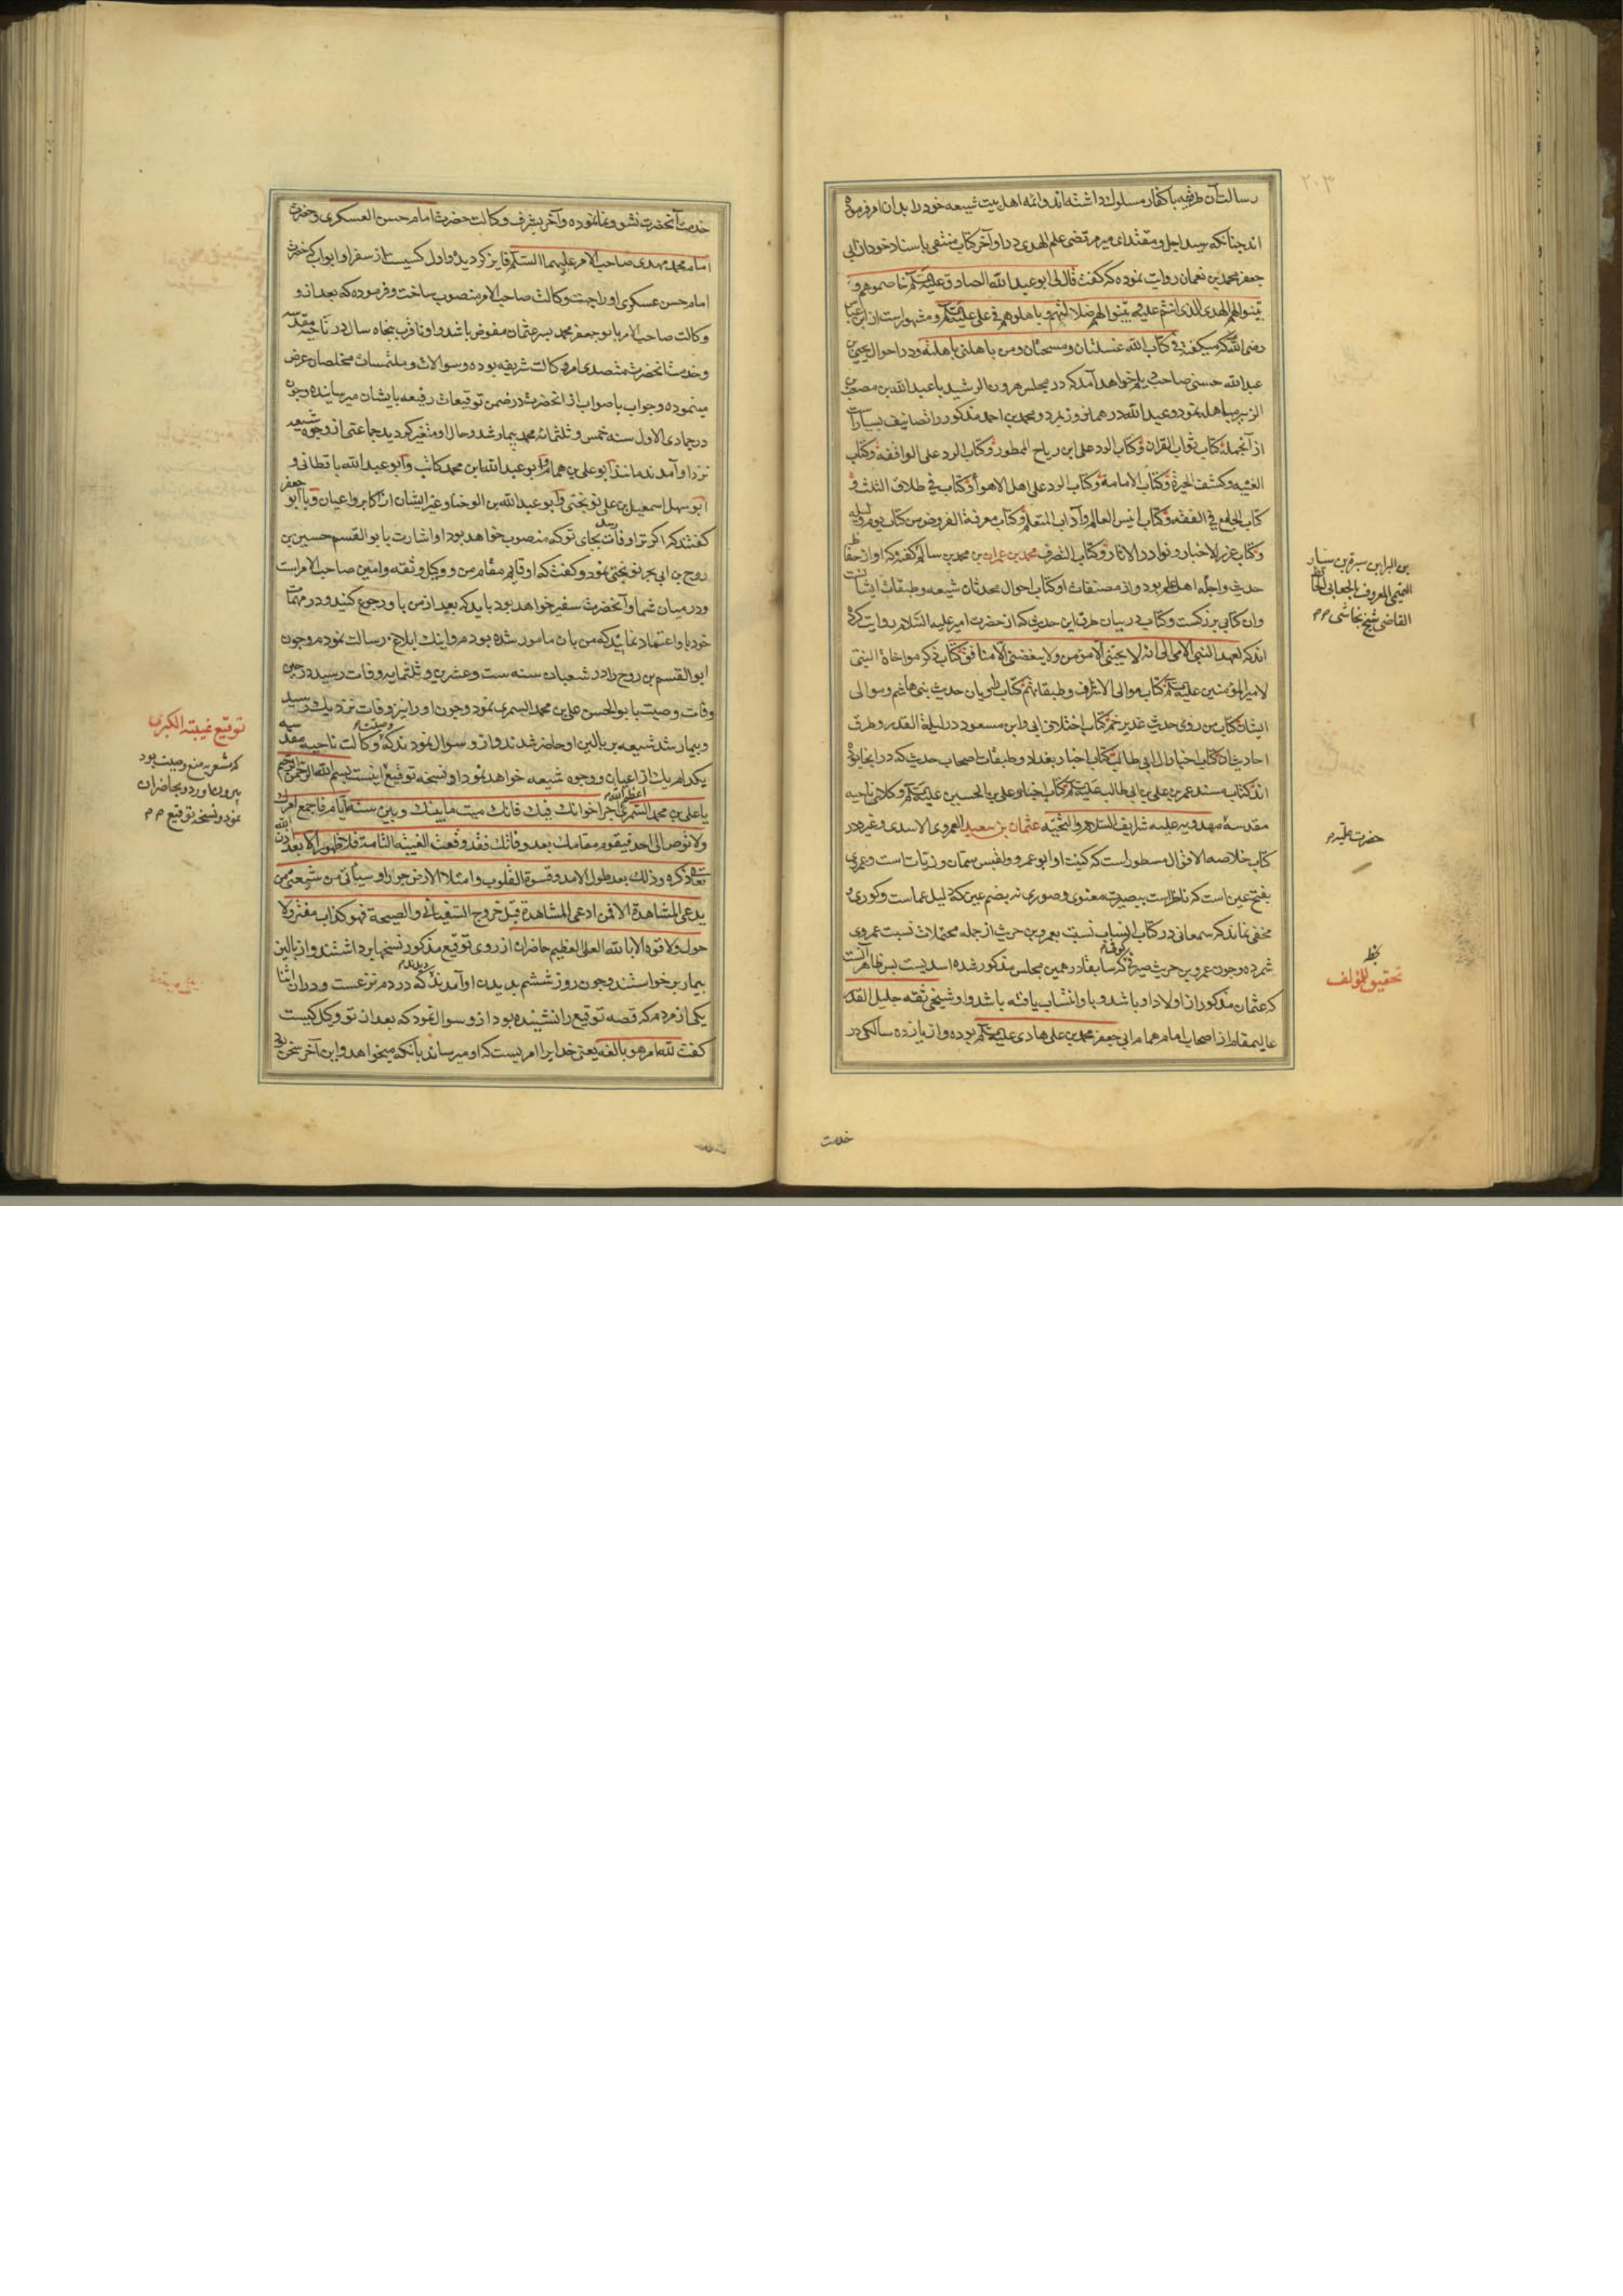 ۲۰۳
رسالت آن طریقه با کفار مسلوک داشته‌اند و ائمه اهل بیت شیعه خود را بدان امر فرموده
اند چنانکه سید اجل و مقتدای میر مرتضی علم الهدی در اواخر کتاب منتقی باسناد خود از ابی
جعفر محمد بن نعمان روایت نموده که گفت قال لی ابو عبد الله الصادق علیه السلم خاصموهم و
بینوا لهم الهدی الذی انتم علیه و بینوا لهم ضلالتهم و باهلوهم فی علی علیه السلم و مشهور است از ابن عباس
رضی الله که میگفته فی کتاب الله غسلتان و مسحتان و من باهلنی باهلته و در احوال یحیی بن
عبد الله حسنی صاحب دیلم خواهد آمد که در مجلس هرون الرشید با عبد الله بن مصعب
الزبیر مباهله نمود و عبد الله در همان روز بمرد و محمد بن احمد مذکور را تصانیف بسیار است
از آنجمله کتاب ثواب القران و کتاب الرد علی ابن ریاح الممطور و کتاب الرد علی الواقفه و کتاب
الغیبه و کشف الحیرة و کتاب الامامة و کتاب الرد علی اهل الاهوا و کتاب فی طلاق الثلث و
کتاب الجامع فی الفقه و کتاب انیس العالم و آداب المتعلم و کتاب معرفة الفروض من کتاب یوم و لیله
و کتاب غرر الاخبار و نوادر الاثار و کتاب التصرف محمد بن عمران بن محمد بن سالم گفته که او از حفاظ
حدیث و اجلّه اهل علم بود و از مصنفات او کتاب احوال محدثان شیعه و طبقات ایشانست
وان کتابی بزرگست و کتاب در بیان طرق این حدیث که از حضرت امیر علیه السلام روایت کرده
اند که لعهد النبی الامی الی انه لا یحبنی الا مؤمن و لا یبغضنی الا منافق و کتاب ذکر مواخاة النبی
لامیر المؤمنین علیه السلم و کتاب موالی الاشراف و طبقاتهم و کتاب طوبان حدیث بنی هاشم و موالی
ایشان و کتاب من روی حدیث غدیر خم و کتاب اختلاف ابی و ابن مسعود در لیلة القدر و طرق
احادیث ان و کتاب اخبار ال ابی طالب و کتاب اخبار بغداد و طبقات اصحاب حدیث که در انجا بوده
اند و کتاب مسند عمر بن علی بن ابی طالب علیه السلم و کتاب اخبار علی بن الحسین علیه السلم و کلای ناحیه
مقدسه مهدویه علیه شرایف السلام و التحیه عثمان بن سعید العمروی الاسدی و غیره در
کتاب خلاصه الاقوال مسطور است که کنیت او ابو عمرو و لقبش سمّان و زیّات است و عمروی
بفتح عین است که ناظر است ببصیرت معنوی و صوری نه بضم عین که دلیل عماست و کوری
مخفی نماند که سمعانی در کتاب انساب نسبت بعمرو بن حریث از جمله محتملات نسبت عمروی
شمرده و چون عمرو بن حریث صیرفی کوفی که سابقا در همین مجلس مذکور شده اسدیست پس ظاهر آنست
که عثمان مذکور از اولاد او باشد و با و انتساب یافته باشد و او شیخی ثقه جلیل القدر
عالیمقام از اصحاب امام همام ابی جعفر محمد بن علی هادی علیه السلم بوده و از یازده سالگی در
خدمت
بن البراء بن سبرة بن سیار
التمیمی المعروف بالجعابی الحافظ
القاضی شیخ نجاشی م م
حضرت علیه م
بخطه
تحقیق للمؤلف
خدمت آنحضرت نشو و نما نموده و آخر بشرف وکالت حضرت امام حسن العسکری و حضرت
امام محمد مهدی صاحب الامر علیهما السلم فایز گردیده و اول کسیست از سفرا و ابواب که حضرت
امام حسن عسکری او را بجهت وکالت صاحب الامر منصوب ساخت و فرموده که بعد از و
وکالت صاحب الامر با بو جعفر محمد پسر عثمان مفوض باشد و او تا قرب پنجاه سال در ناحیه مقدسه
و خدمت آنحضرت متصدی امر وکالت شریفه بوده و سوالات و ملتمسات مخلصان عرض
مینموده و جواب با صواب از آنحضرت در ضمن توقیعات رفیعه بایشان میرسانیده و چون
در جمادی الاول سنه خمس و ثلثمائه محمد بیمار شد و حال او متغیر گردید جماعتی از وجوه شیعه
نزد او آمدند مانند ابو علی بن همام و ابو عبد الله ابن محمد کاتب و ابو عبد الله باقطانی و
ابو سهل اسمعیل بن علی نوبختی و ابو عبد الله بن الوجنا و غیر ایشان از اکابر و اعیان و با ابو جعفر
گفتند که اگر ترا وفات رسد بجای تو که منصوب خواهد بود او اشارت بابو القسم حسین بن
روح بن ابی بحر نوبختی نمود و گفت که او قایم مقام من و وکیل و ثقه و امین صاحب الامر است
و در میان شما و آنحضرت سفیر خواهد بود باید که بعد از من باو رجوع کنید و در مهمات
خود باو اعتماد نمائید که من بان مامور شده بودم و اینک ابلاغ رسالت نمودم و چون
ابو القسم بن روح را در شعبان سنه ست و عشرین و ثلثمایه وفات رسید در حین
وفات وصیت بابو الحسن علی بن محمد السمری نمود و چون او را نیز وفات نزدیک رسید
و بیمار شد شیعه بر بالین او حاضر شدند و از و سوال نمودند که وصیت وکالت ناحیه مقدسه
بکدام یک از اعیان و وجوه شیعه خواهد نمود او نسخه توقیع اینست بسم الله الرحمن الرحیم
یا علی بن محمد السمری اعظم الله اجر اخوانک فیک فانک میت ما بینک و بین ستة ایام فاجمع امرک
و لا توص الی احد فیقوم مقامک بعد وفاتک فقد وقعت الغیبة التامة فلا ظهور الا بعد اذن الله
تعالی ذکره و ذلک بعد طول الامد و قسوة القلوب و امتلاء الارض جورا و سیاتی من شیعتی من
یدعی المشاهدة الا فمن ادعی المشاهدة قبل خروج السفیانی و الصیحة فهو کذاب مفتر و لا
حول و لا قوة الا بالله العلی العظیم حاضران از روی توقیع مذکور نسخها برداشتند و از بالین
بیمار برخواستند و چون روز ششم بدیدن او آمدند دیدند که در دم نزعست و در ان اثنا
یکی از مردم که قصه توقیع را نشینده بود از و سوال نمود که بعد از تو وکیل کیست
گفت لله امر هو بالغه یعنی خدایرا امریست که او میرساند بانکه میخواهد و این آخر سخن
توقیع غیبته الکبری
که مشعر بر منع وصیت بود
بیرون اورد و بحاضران
نمود و نسخه توقیع م م